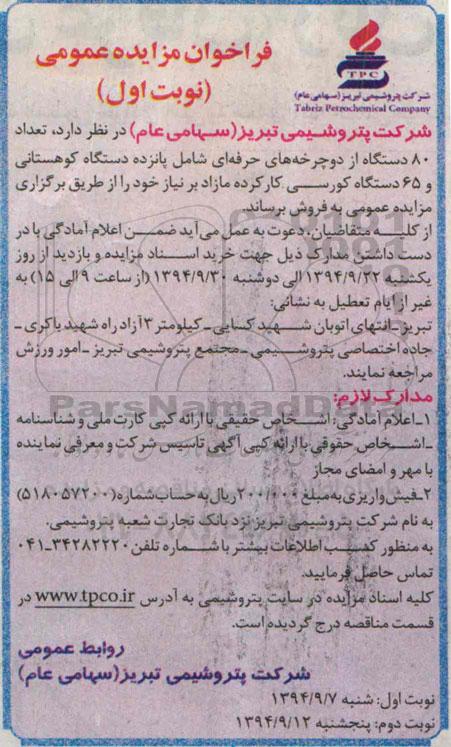 فراخوان مزایده عمومی
(نوبت اول)
TPC
شرکت پتروشیمی تبریز (سهامی عام)
Tabriz Petrochemical Company
شرکت پتروشیمی تبریز (سهامی عام) در نظر دارد، تعداد
۸۰ دستگاه از دوچرخه‌های حرفه‌ای شامل پانزده دستگاه کوهستانی
و ۶۵ دستگاه کورسی کارکرده مازاد بر نیاز خود را از طریق برگزاری
مزایده عمومی به فروش برساند.
از کلیه متقاضیان، دعوت به عمل می‌آید ضمن اعلام آمادگی با در
دست داشتن مدارک ذیل جهت خرید اسناد مزایده و بازدید از روز
یکشنبه ۱۳۹۴/۹/۲۲ الی دوشنبه ۱۳۹۴/۹/۳۰ (از ساعت ۹ الی ۱۵) به
غیر از ایام تعطیل به نشانی:
تبریز ـ انتهای اتوبان شهید کسایی ـ کیلومتر ۳ آزاد راه شهید باکری ـ
جاده اختصاصی پتروشیمی ـ مجتمع پتروشیمی تبریز ـ امور ورزش
مراجعه نمایند.
مدارک لازم:
ParsNamadData
۱ـ اعلام آمادگی: اشخاص حقیقی با ارائه کپی کارت ملی و شناسنامه
ـ اشخاص حقوقی با ارائه کپی آگهی تاسیس شرکت و معرفی نماینده
با مهر و امضای مجاز
۲ـ فیش واریزی به مبلغ ۲۰۰/۰۰۰ ریال به حساب شماره (۵۱۸۰۵۷۲۰۰)
به نام شرکت پتروشیمی تبریز نزد بانک تجارت شعبه پتروشیمی.
به منظور کسب اطلاعات بیشتر با شماره تلفن ۳۴۲۸۲۲۲۰ـ۰۴۱
تماس حاصل فرمایید.
کلیه اسناد مزایده در سایت پتروشیمی به آدرس www.tpco.ir در
قسمت مناقصه درج گردیده است.
روابط عمومی
شرکت پتروشیمی تبریز (سهامی عام)
نوبت اول: شنبه ۱۳۹۴/۹/۷
نوبت دوم: پنجشنبه ۱۳۹۴/۹/۱۲